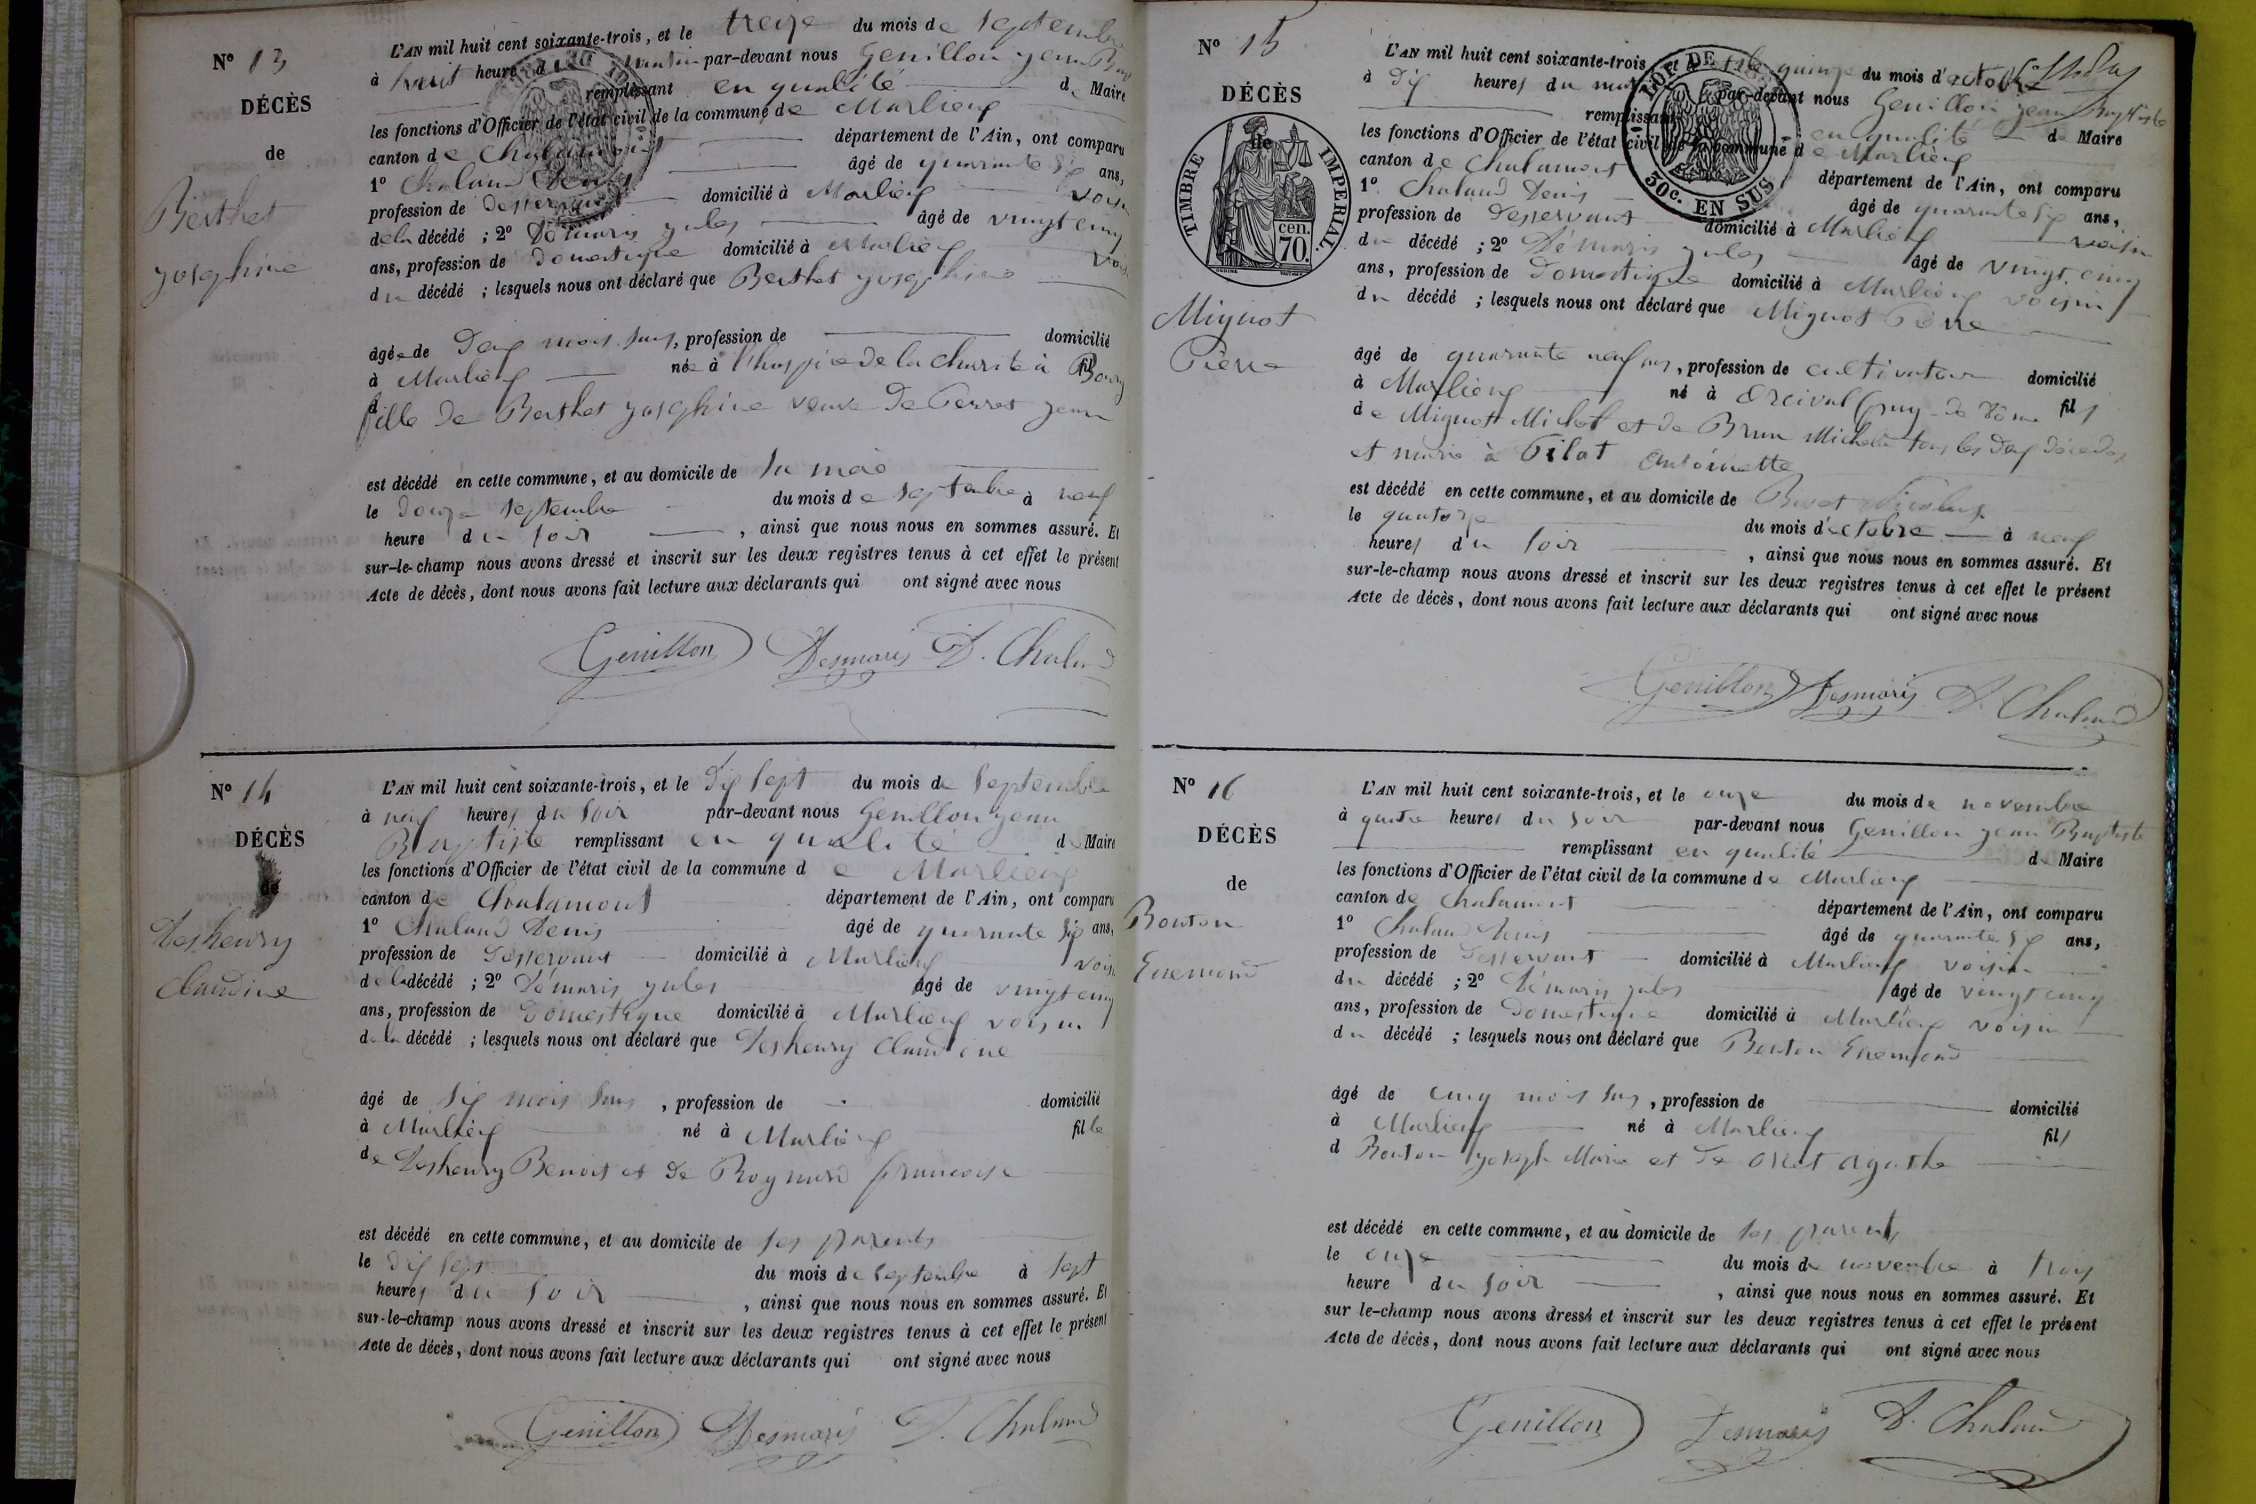 N° 13
DÉCÈS
de
Berthet
josephine
L'AN mil huit cent soixante-trois, et le treize du mois de septembre
à huit heures du matin par-devant nous Genillon jean
remplissant en qualité de Maire
les fonctions d'Officier de l'état civil de la commune de Marlieux
canton de Chalamont département de l'Ain, ont comparu
1° Chaland Denis âgé de quarante six ans,
profession de desservant domicilié à Marlieux voisin
de la décédé ; 2° Démaris jules âgé de vingt cinq
ans, profession de Domestique domicilié à Marlieux
du décédé ; lesquels nous ont déclaré que Berthet josephine
âgée de Deux mois sans, profession de domicilié
à Marlieux née à l'hospice de la charité à Bourg fil
fille de Berthet josephine veuve de Perret jean
est décédé en cette commune, et au domicile de sa mère
le douze septembre du mois de septembre à neuf
heure du soir, ainsi que nous nous en sommes assuré. Et
sur-le-champ nous avons dressé et inscrit sur les deux registres tenus à cet effet le présent
Acte de décès, dont nous avons fait lecture aux déclarants qui ont signé avec nous
Genillon Desmaris D. Chaland
N° 14
DÉCÈS
de
Deshenry
Claudine
L'AN mil huit cent soixante-trois, et le dix sept du mois de septembre
à neuf heures du soir par-devant nous Genillon jean
Baptiste remplissant en qualité de Maire
les fonctions d'Officier de l'état civil de la commune de Marlieux
canton de Chalamont département de l'Ain, ont comparu
1° Chaland Denis âgé de quarante six ans,
profession de desservant domicilié à Marlieux voisin
de la décédé ; 2° Démaris jules âgé de vingt cinq
ans, profession de Domestique domicilié à Marlieux voisin
de la décédé ; lesquels nous ont déclaré que Deshenry Claudine
âgé de six mois sans, profession de domicilié
à Marlieux né à Marlieux fille
de Deshenry Benoit et de francoise
est décédé en cette commune, et au domicile de ses parents
le dix sept du mois de septembre à sept
heures du soir, ainsi que nous nous en sommes assuré. Et
sur-le-champ nous avons dressé et inscrit sur les deux registres tenus à cet effet le présent
Acte de décès, dont nous avons fait lecture aux déclarants qui ont signé avec nous
Genillon Desmaris D. Chaland
N° 15
DÉCÈS
de
TIMBRE IMPERIAL.
cen. 70.
Mignot
Pierre
L'AN mil huit cent soixante-trois, et le quinze du mois d'octobre
à dix heures du matin par-devant nous Genillon jean Baptiste
remplissant en qualité de Maire
les fonctions d'Officier de l'état civil de la commune de Marlieux
canton de Chalamont département de l'Ain, ont comparu
1° Chaland Denis âgé de quarante six ans,
profession de desservant domicilié à Marlieux voisin
du décédé ; 2° Démaris jules âgé de vingt cinq
ans, profession de Domestique domicilié à Marlieux voisin
du décédé ; lesquels nous ont déclaré que Mignot Pierre
âgé de quarante neuf ans, profession de cultivateur domicilié
à Marlieux né à Orcival (puy-de Dôme fils
de Mignot Michel et de Brun Michelle tous les deux décédés
et marié à Pilat Antoinette
est décédé en cette commune, et au domicile de Nicolas
le quatorze du mois d'octobre à neuf
heures du soir, ainsi que nous nous en sommes assuré. Et
sur-le-champ nous avons dressé et inscrit sur les deux registres tenus à cet effet le présent
Acte de décès, dont nous avons fait lecture aux déclarants qui ont signé avec nous
30c. EN SUS
Genillon Desmaris D. Chaland
N° 16
DÉCÈS
de
Bouton
Enemond
L'AN mil huit cent soixante-trois, et le onze du mois de novembre
à quatre heures du soir par-devant nous Genillon jean Baptiste
remplissant en qualité de Maire
les fonctions d'Officier de l'état civil de la commune de Marlieux
canton de Chalamont département de l'Ain, ont comparu
1° Chaland Denis âgé de quarante six ans,
profession de desservant domicilié à Marlieux voisin
du décédé ; 2° Démaris jules âgé de vingt cinq
ans, profession de Domestique domicilié à Marlieux voisin
du décédé ; lesquels nous ont déclaré que Bouton Enemond
âgé de cinq mois sans, profession de domicilié
à Marlieux né à Marlieux fils
d Bouton joseph Marie et de agathe
est décédé en cette commune, et au domicile de ses parents
le onze du mois de novembre à trois
heure du soir, ainsi que nous nous en sommes assuré. Et
sur le-champ nous avons dressé et inscrit sur les deux registres tenus à cet effet le présent
Acte de décès, dont nous avons fait lecture aux déclarants qui ont signé avec nous
Genillon Desmaris D. Chaland